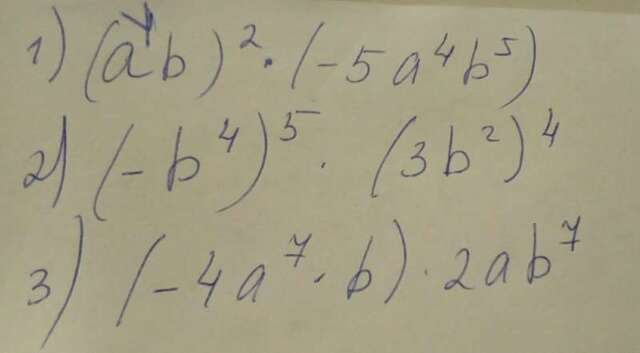 1) (a⁴b)²·(-5a⁴b⁵)
2) (-b⁴)⁵ · (3b²)⁴
3) (-4a⁷·b)·2ab⁷